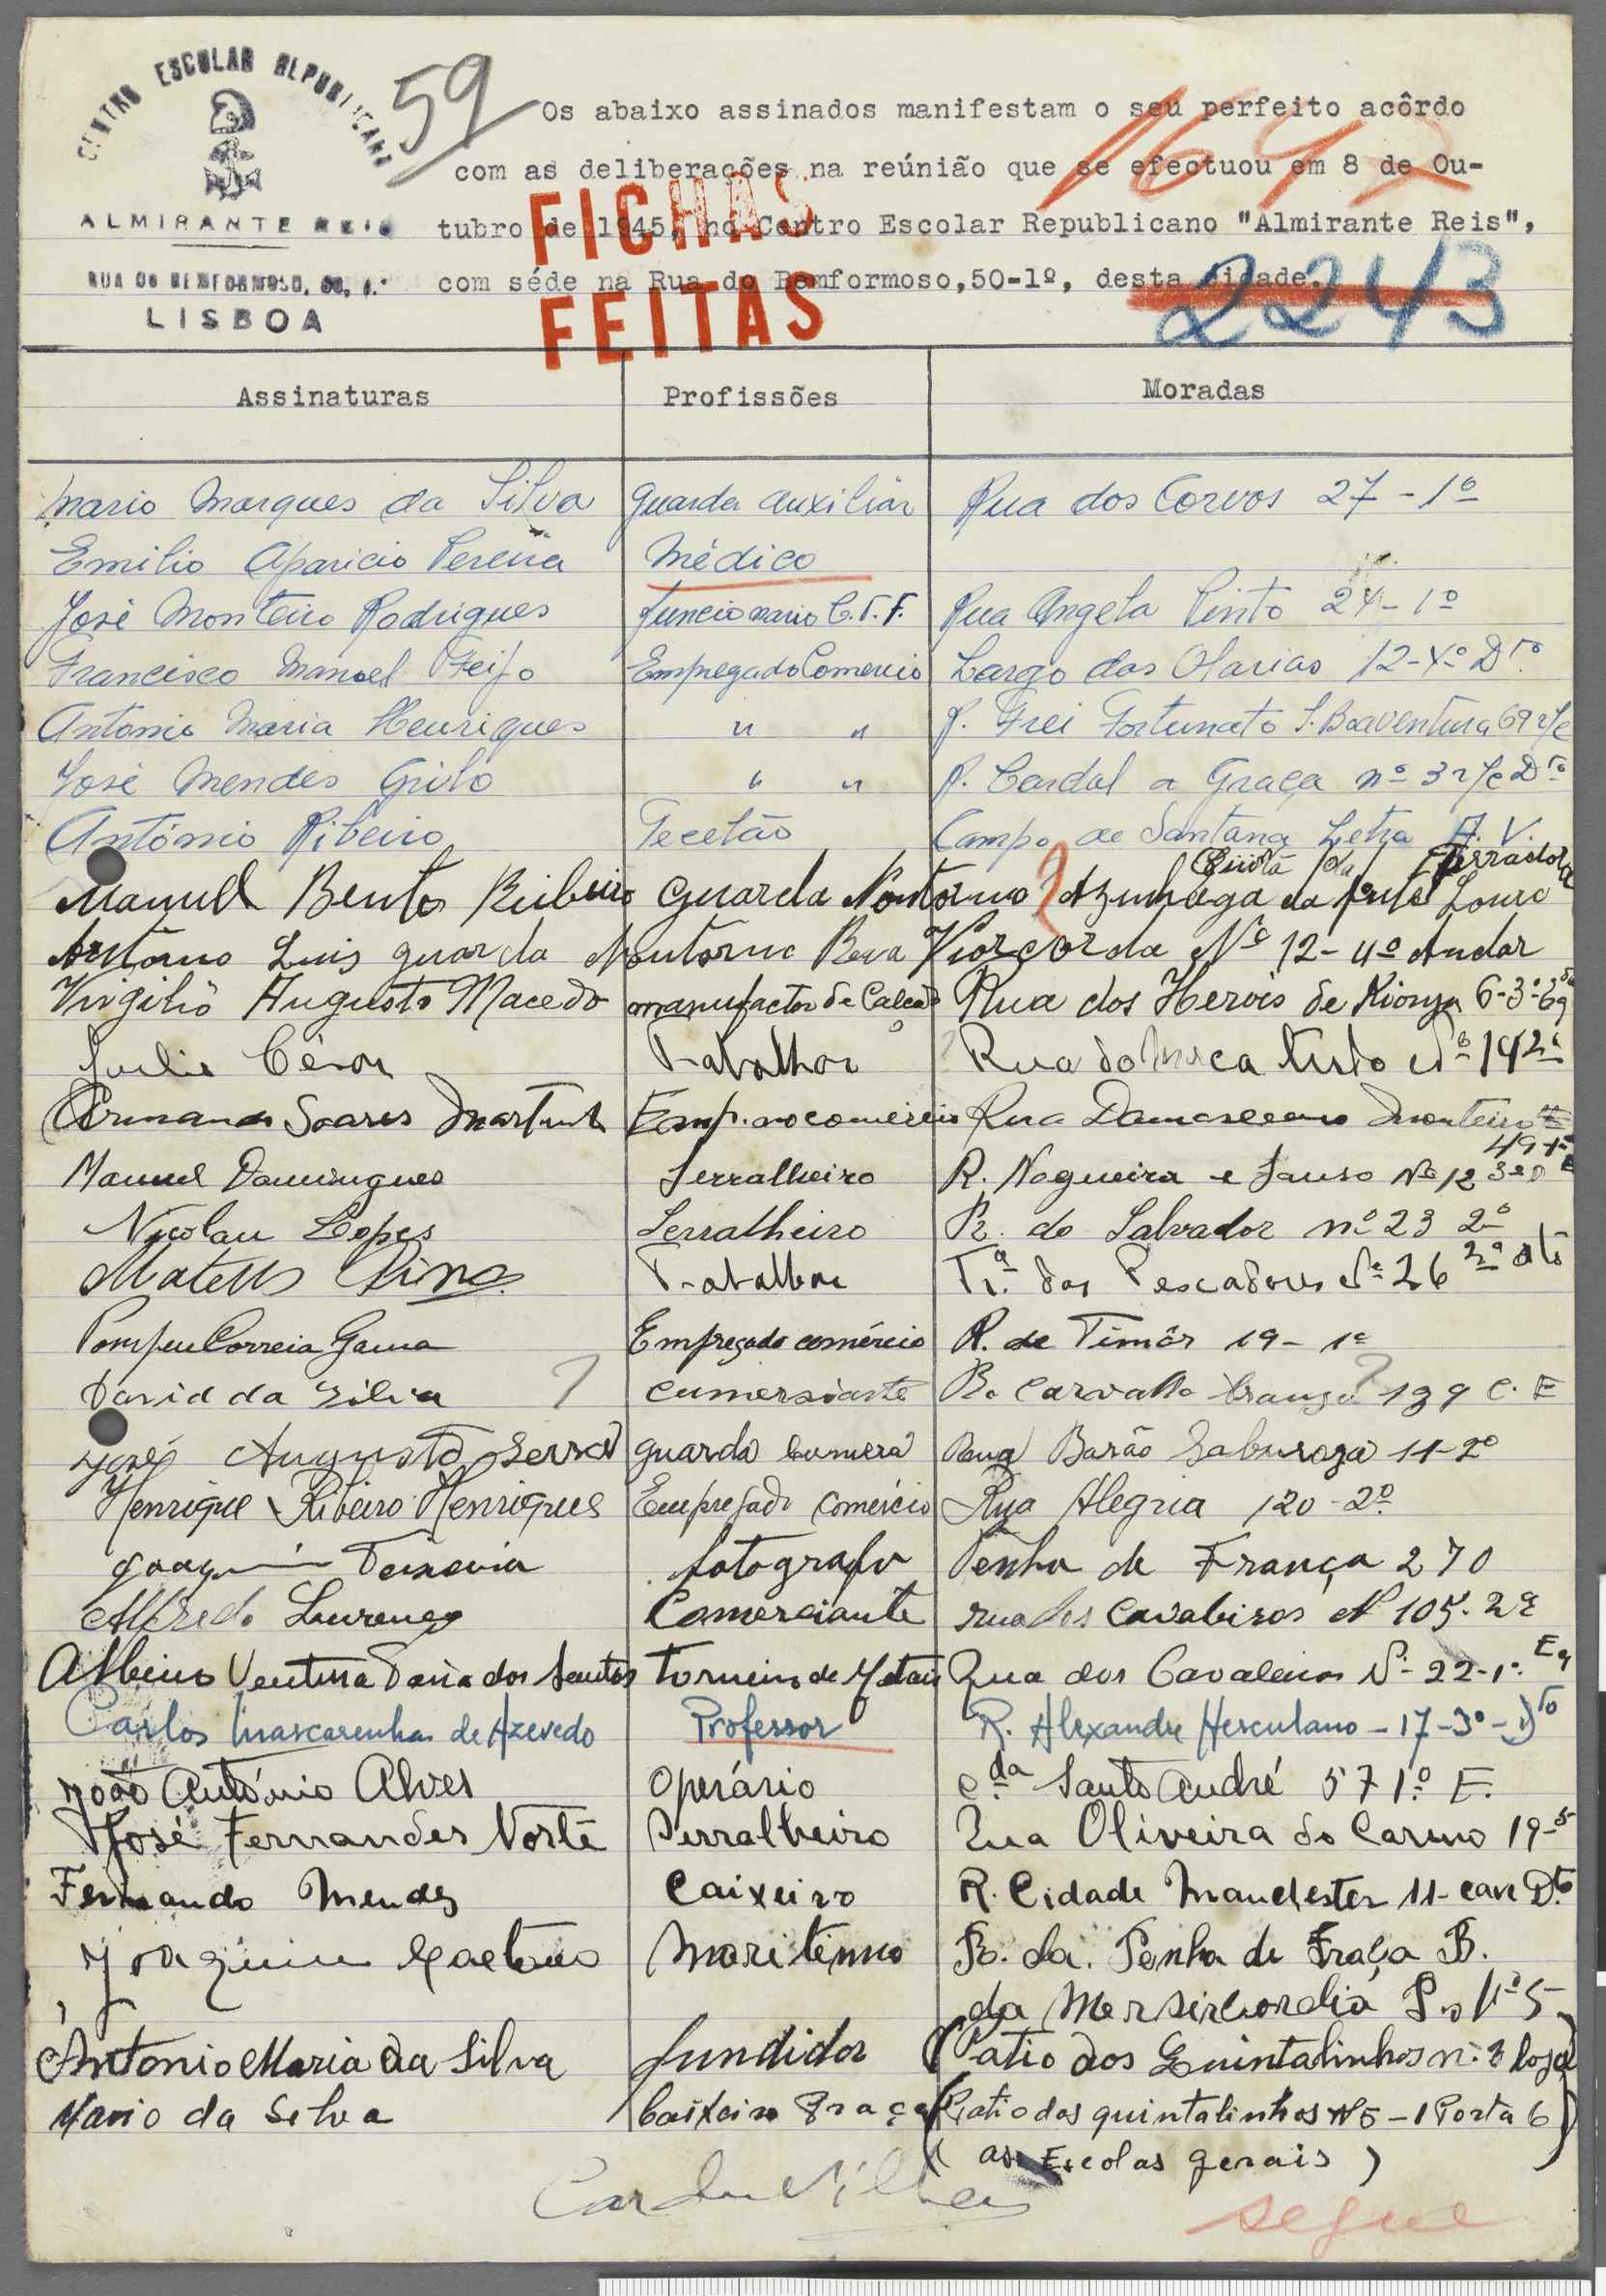 CENTRO ESCOLAR REPUBLICANO
ALMIRANTE REIS
RUA DO BEMFORMOSO, 50, 1.º
LISBOA
59
Os abaixo assinados manifestam o seu perfeito acôrdo
com as deliberações na reúnião que se efectuou em 8 de Ou-
tubro de 1945, no Centro Escolar Republicano "Almirante Reis",
com séde na Rua do Bemformoso,50-1º, desta cidade.
FICHAS
FEITAS
2243
Assinaturas Profissões Moradas
Mario Marques da Silva Guarda auxiliar Rua dos Corvos 27-1º
Emilio Aparicio Pereira Médico
José Monteiro Rodrigues funcionario C.T.F. Rua Angela Pinto 24-1º
Francisco Manoel Feijo Empregado Comercio Largo das Olarias 12-4º Dto.
Antonio Maria Henriques " " R. Frei Fortunato S. Boaventura 69 r/c
José Mendes Grilo " " R. Cardal a Graça nº 3 r/c Dto
António Ribeiro Tecelão Campo de Santana Letra A. V.
Manuel Bento Ribeiro Guarda Nontorno Azinhaga da Louro
Antonio Luis guarda Nontorno Nº 12-4º Andar
Virgilio Augusto Macedo manufactor de Calçado Rua dos Herois de Kionga 6-3º-Esq
Julio César Trabalhor Rua do
Armando Soares Martins Emp. no comércio Rua Damasceno Monteiro
49-1º E
Manuel Domingues Serralheiro R. Nogueira e Sousa Nº 12 3º D
Nicolau Lopes Serralheiro R. do Salvador nº 23 2º
Mateus Pina Trabalhor Tr.ª dos Pescadores Nº 26 2º dto
Pompeu Correia Gama Empregado comércio R. de Timôr 19-1º
David da Silva ? cumersiante R. Carvalho Araujo ? 139 C. E
José Augusto Serra guarda Rua Barão Saburosa 11-2º
Henrique Ribeiro Henriques Empregado Comércio Rua Alegria 120-2º
Joaquim Teixeira fotografo Penha de França 270
Alfredo Lourenço Comerciante rua dos Cavaleiros Nº 105-2º
Albino Ventura Faria dos Santos Torneiro de Metais Rua dos Cavaleiros Nº 22-1º Eq
Carlos Mascarenhas de Azevedo Professor R. Alexandre Herculano-17-3º-Dto
João António Alves Operário Cda Santo André 57 1º E.
José Fernandes Norte Serralheiro Rua Oliveira do Carmo 19-5
Fernando Mendes Caixeiro R. Cidade Manchester 11-cave Dto
Joaquim Caetano Maritemo R. da. Penha de Fraça B.
da Mersircordia P. Nº 5
Antonio Maria da Silva fundidor (Patio dos Quintalinhos n.º 3 loja)
Mario da Silva Caixeiro Praça (Patio dos quintalinhos Nº 5-1 Porta 6)
(as Escolas gerais)
segue